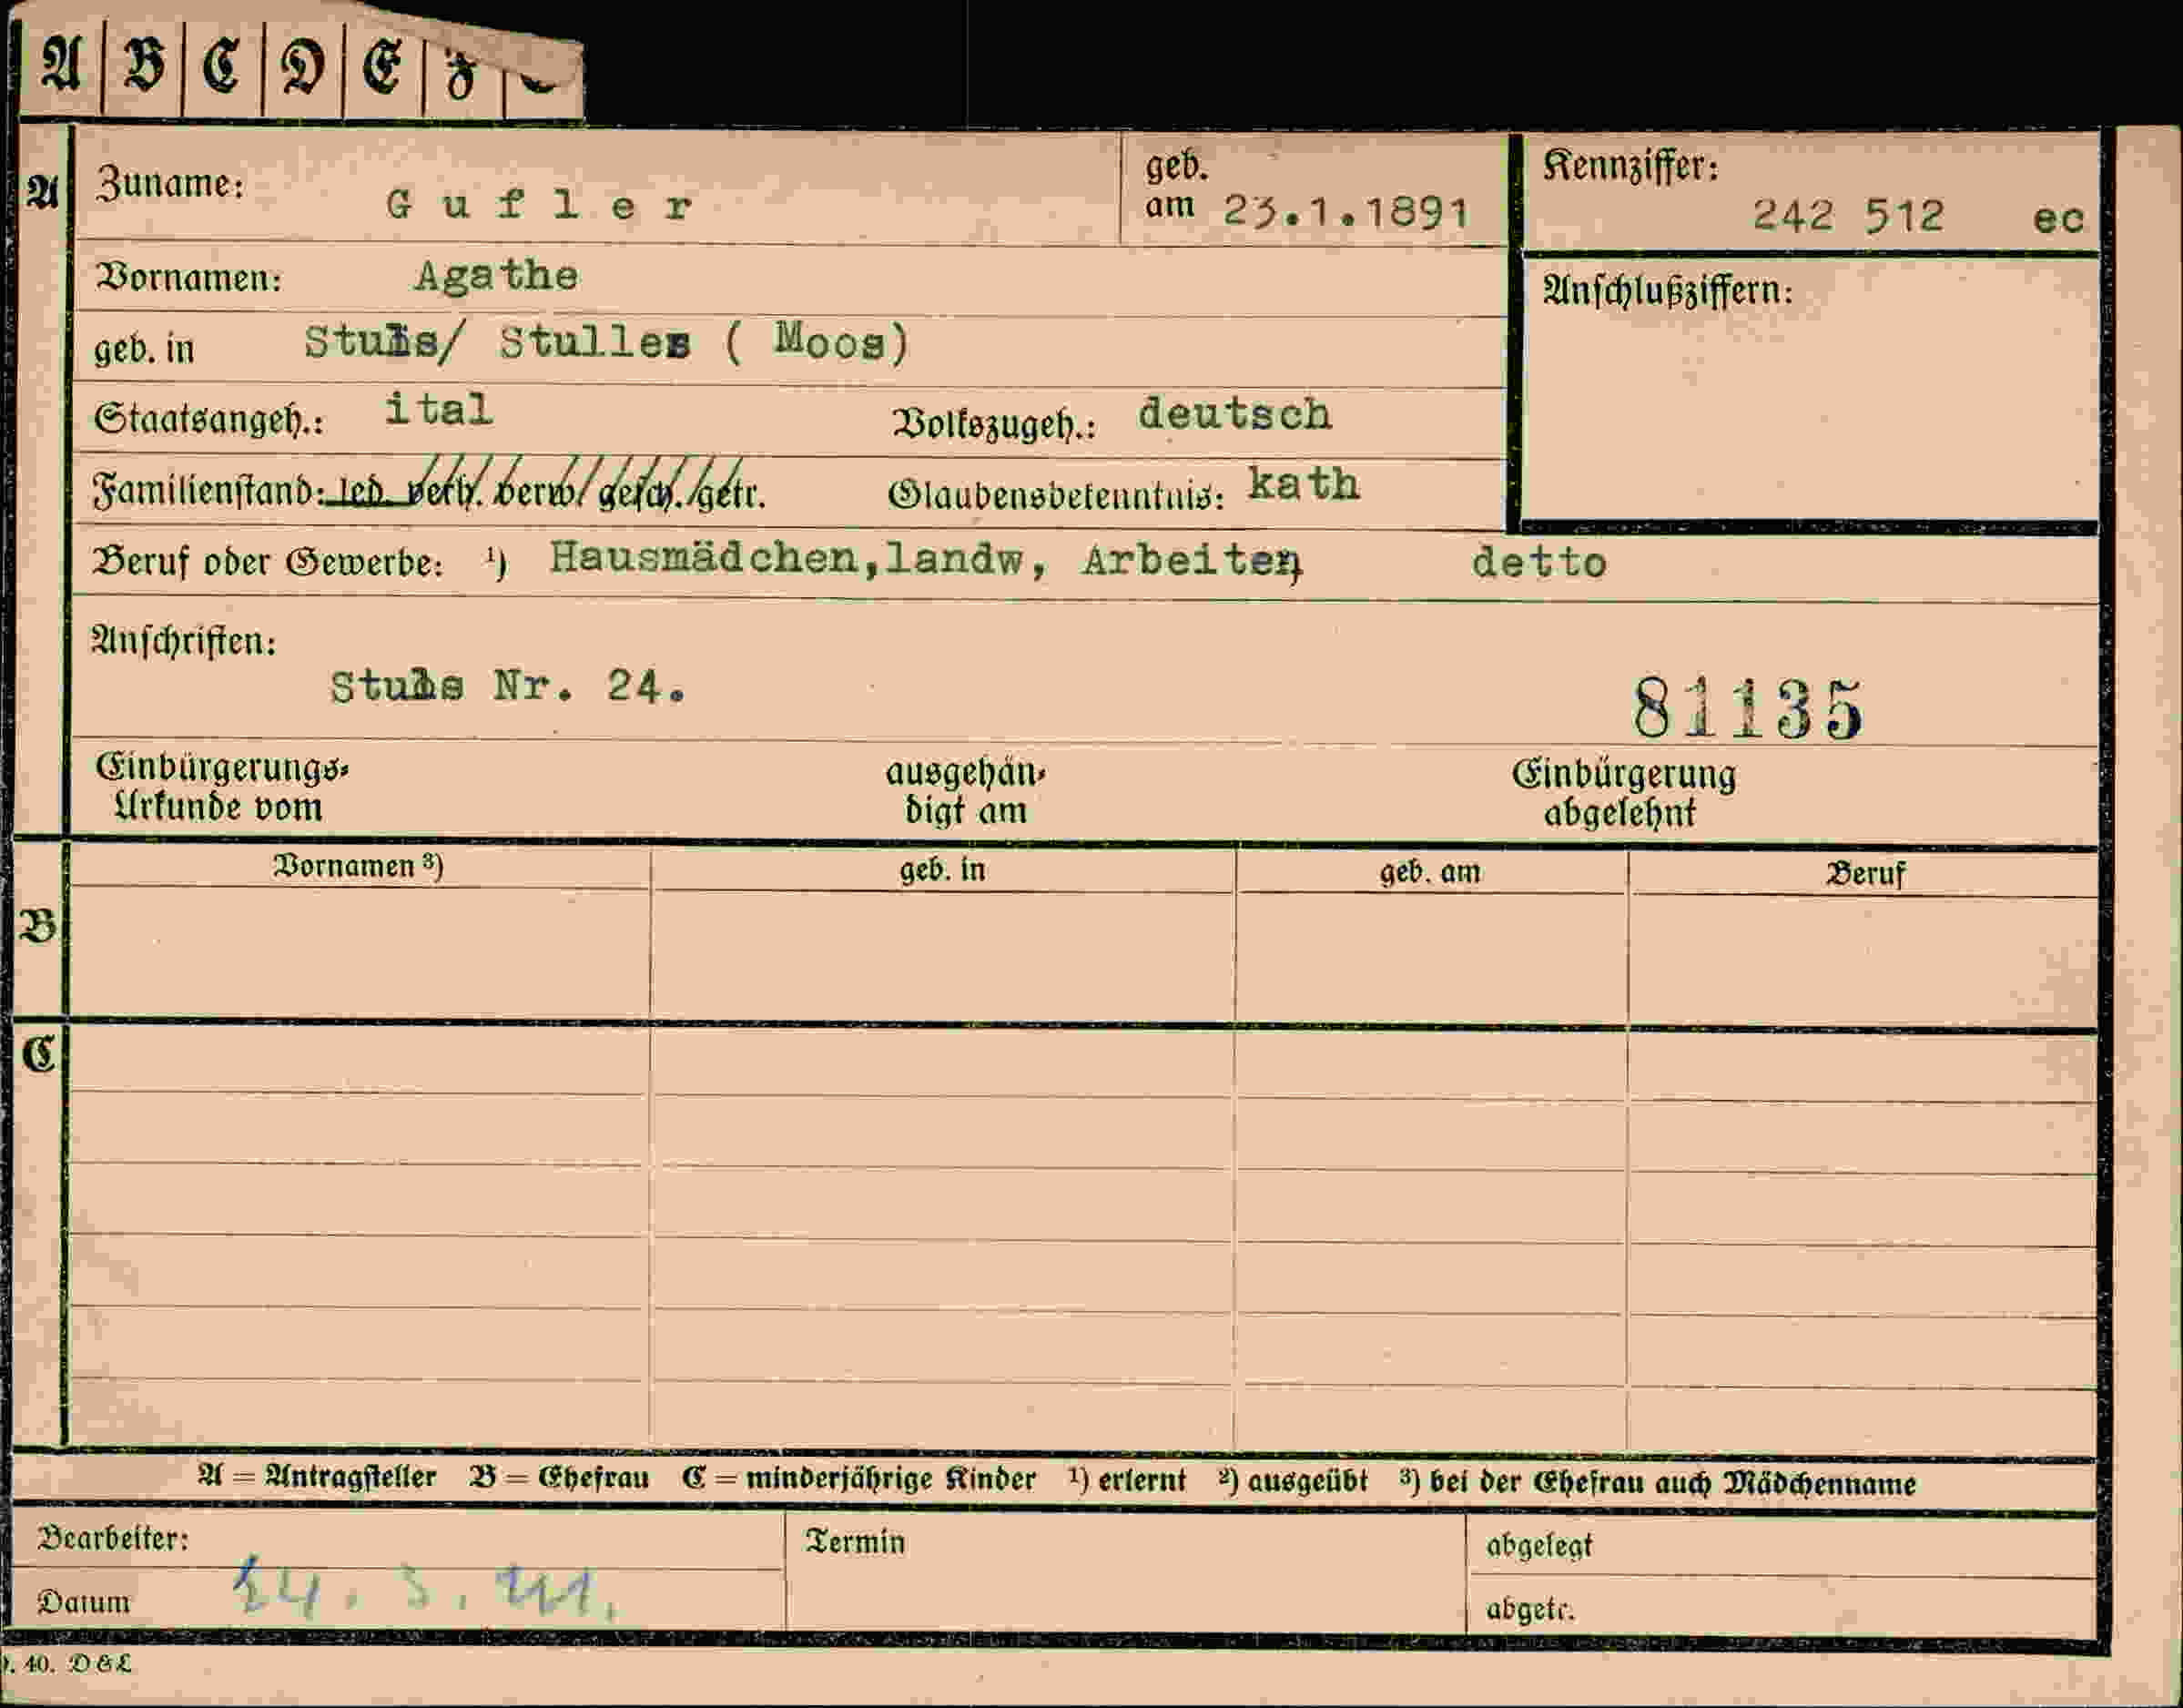 A B C D E F
A Zuname: Gufler geb. am 23.1.1891 Kennziffer: 242 512 ec
Vornamen: Agathe
Anschlußziffern:
geb. in Stuls/ Stulles ( Moos)
Staatsangeh.: ital Volkszugeh.: deutsch
Familienstand: led. verh. verw. gesch. getr. Glaubensbekenntnis: kath
Beruf oder Gewerbe: ¹) Hausmädchen,landw, Arbeiten detto
Anschriften:
Stuls Nr. 24.
81135
Einbürgerungs- ausgehän- Einbürgerung
Urkunde vom digt am abgelehnt
Vornamen ³) geb. in geb. am Beruf
B
C
A = Antragsteller B = Ehefrau C = minderjährige Kinder ¹) erlernt ²) ausgeübt ³) bei der Ehefrau auch Mädchenname
Bearbeiter: Termin abgelegt
Datum 24. 3. 41. abgetr.
40. D & L